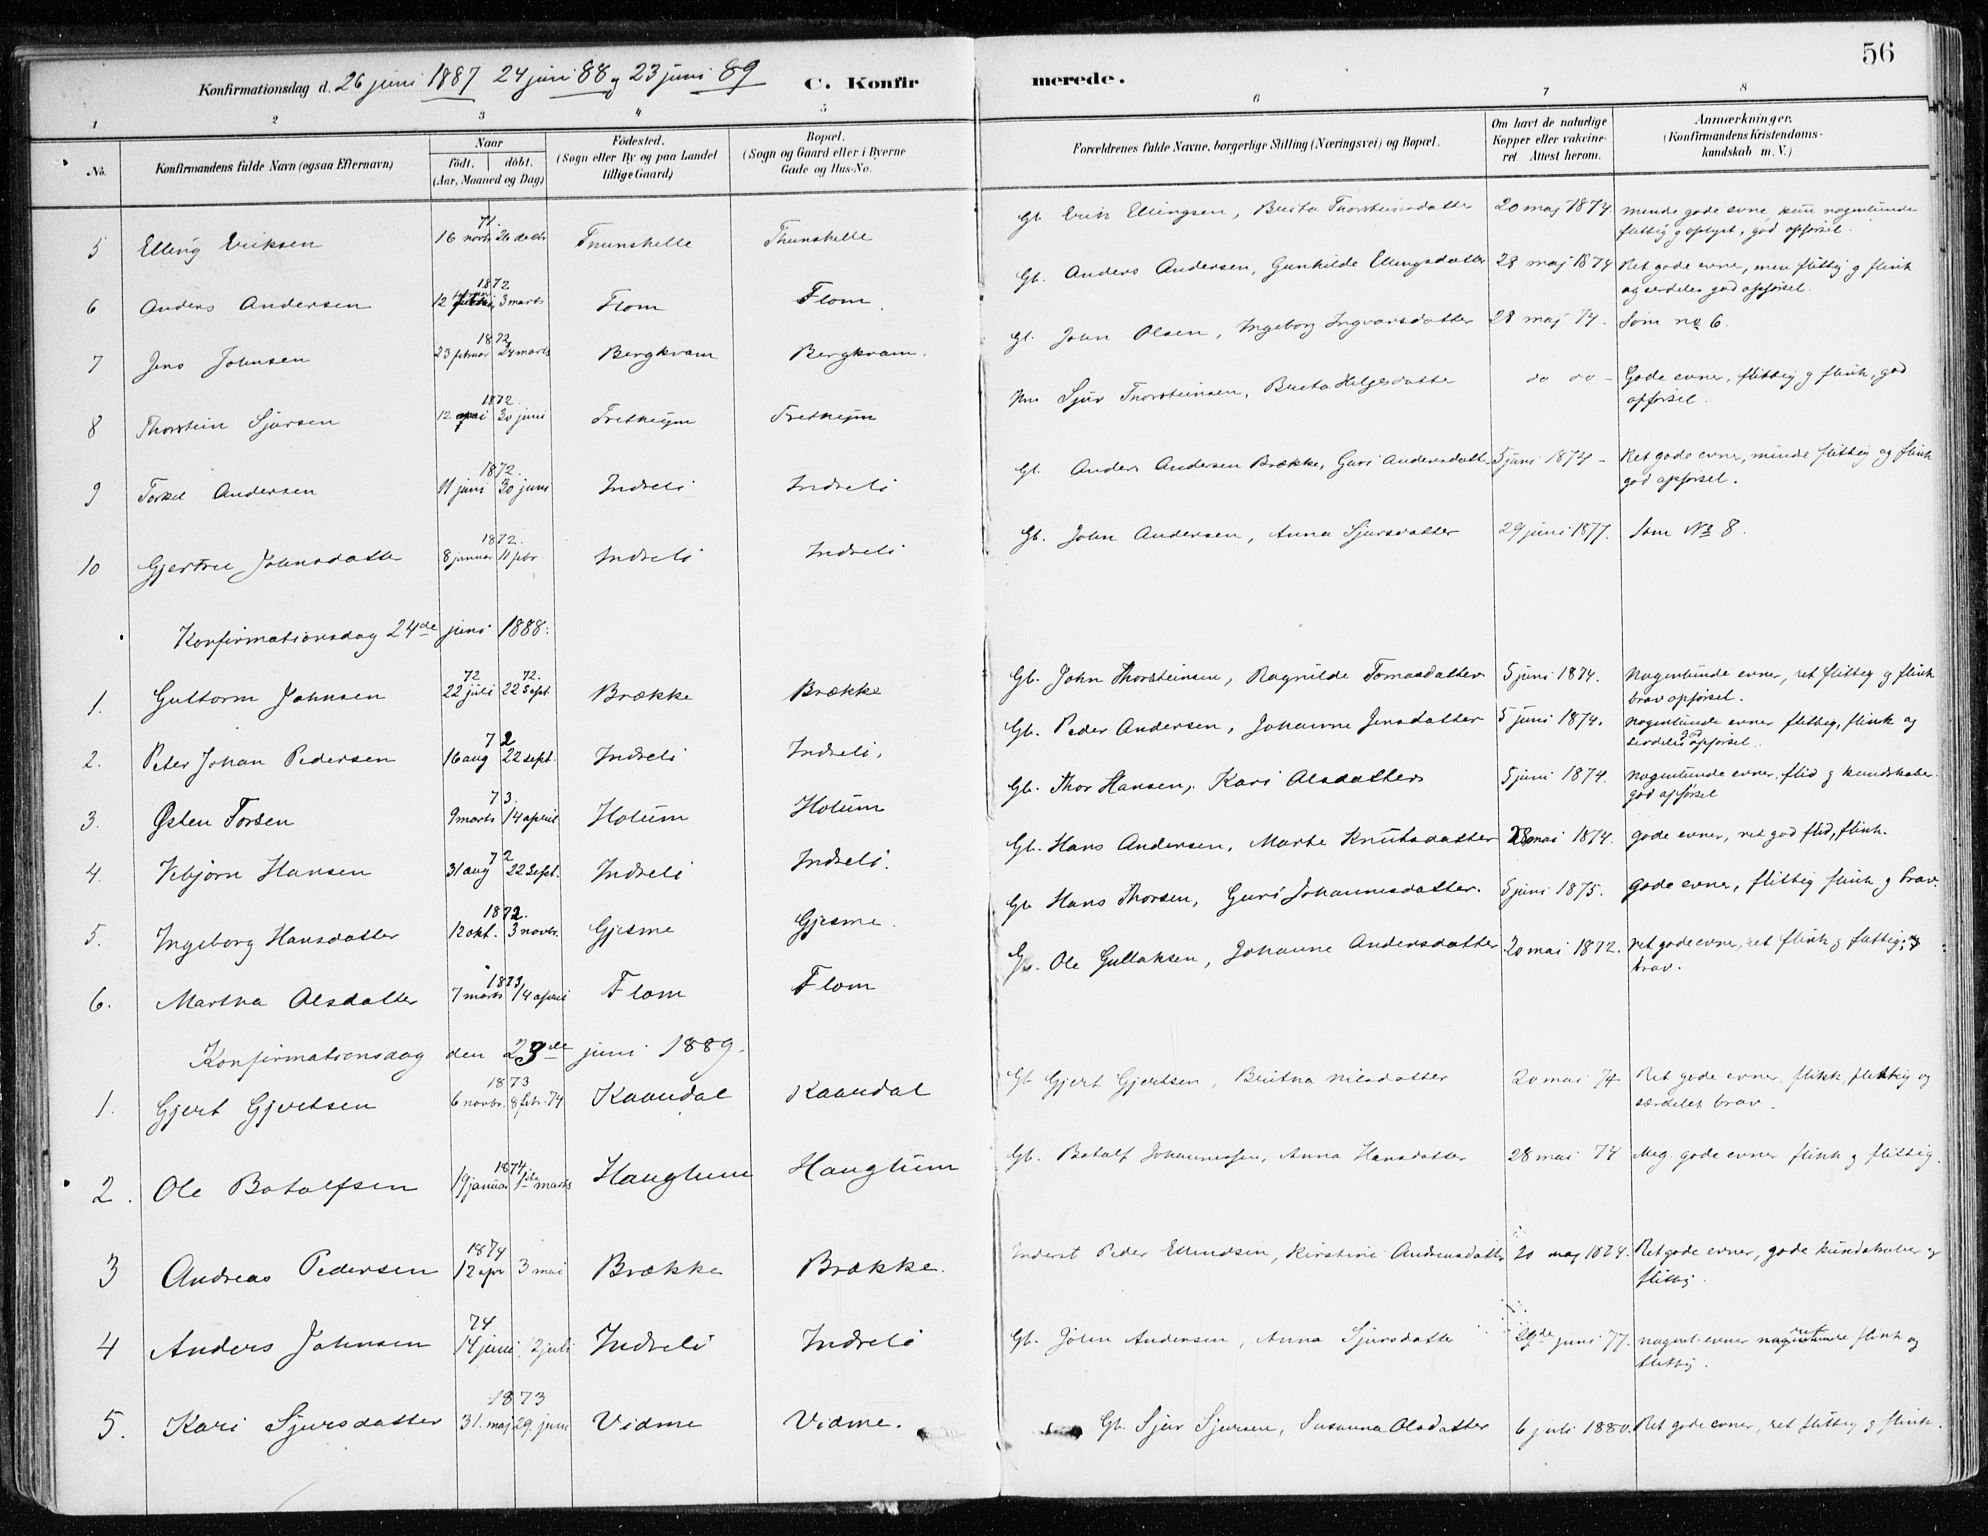 56
Konfirmationsdag d. 26 juni 1887 24 juni 88 og 23 juni 89 C. Konfirmerede.
1 2 3 4 5 6 7 8
No. Konfirmandens fulde Navn (ogsaa Efternavn) Naar født. døbt. (Aar, Maaned og Dag) Fødested. (Sogn eller By og paa Landet tillige Gaard) Bopæl. (Sogn og Gaard eller i Byerne Gade og Hus-No. Forældrenes fulde Navne, borgerlige Stilling (Næringsvei) og Bopæl. Om havt de naturlige Kopper eller vakcineret Attest herom. Anmærkninger. (Konfirmandens Kristendomskundskab m. V.)
5 Elling Eriksen 71. 16 novbr 26 decbr Thunshelle Thunshelle Gb. Erik Ellingsen, Brita Thorsteinsdatter 20 maj 1874. mindre gode evne, kun nogenlunde flittig g oplyst, god opførsel.
6 Anders Andersen 1872 12 februar 3 marts Flom Flom Gb. Anders Andersen, Gunhilde Ellingsdatter 28 maj 1874 Ret gode evne, men flittig g flink og serdeles god opførsel.
7 Jens Johnsen 1872 23 februar 24 marts Bergkvam Bergkvam. Gb. John Olsen, Ingeborg Ingvarsdatter 28 maj 74. Som no 6.
8 Thorstein Sjursen 1872. 12 30 juni Fretheijm Fretheijm Hm Sjur Thorsteinsen, Brita Helgesdatter do do - Gode evner, flittig g flink, god opførsel.
9 Torkel Andersen 1872. 11 juni 30 juni Indreli Indreli Gb. Anders Andersen Brække, Guri Andersdatt. 5 juni 1874 - Ret gode evner, mindre flittig og flink god opførsel.
10 Gjertru Johnsdatter 1872. 8 januar 11 febr Indreli Indreli Gb. John Andersen, Anna Sjursdatter 29 juni 1877. Som No 8.
Konfirmationsdag 24de juni 1888.
1. Guttorm Johnsen 72 22 juli 72. 22 Sept. Brække Brække Gb. John Thorsteinsen, Ragnilde Tomasdatter 5 juni 1874. Nogenlunde evner, ret flittig g flink brav opførsel.
2. Peter Johan Pedersen 72 16 aug 22 sept. Indreli Indreli. Gb. Peder Andersen, Johanne Jensdatter 5 juni 1874. nogenlunde evner flittig, flink og serdeles god opførsel.
3. Østen Torsen 73. 9 marts 14 april Holum Holum Gb. Thor Hansen, Kari Olsdatter 5 juni 1874. nogenlunde evner, flid g kundskaber god opførsel
4. Vibjørn Hansen 72 31 aug 22 sept. Indreli Indreli. Gb. Hans Andersen, Marte Knutsdatter 28 mai 1874. gode evner, ret god flid, flink.
5. Ingeborg Hansdatter 1872. 12 okt. 3 novbr. Gjesme Gjesme. Gb. Hans Thorsen, Guri Johannesdatter. 5 juni 1875. gode evner, flittig flink g brav.
6. Martha Olsdatter 1873 7 marts 14 april Flom Flom Gb. Ole Gullaksen, Johanne Andersdatter 20 mai 1872. ret gode evner, ret flink g flittig, og brav.
Konfirmationsdag den 23de juni 1889.
1. Gjert Gjertsen 1873 6 novbr. 8 febr. 74 Kaardal Kaardal Gb. Gjert Gjertsen, Britha Nilsdatter 20 mai 74 Ret gode evner. flikk, flikktig og særdeles brav.
2. Ole Botolfsen 1874. 19 januar 1ste marts Haugtum Haugtum Gb. Botolf Johannessen, Anna Hansdatter 28 mai 74 Meg. gode evner flink g flittig.
3 Andreas Pedersen 1874 12 apr 3 mai Brække Brække. Inderst Peder Ellendsen, Kirstine Andreasdatter 20 maj 1874. Ret gode evner, gode kundskaber og flittig.
4 Anders Johnsen 74 14 juni 12 juli Indreli Indreli Gb. John Andersen, Anna Sjursdatter 29de juni 77. nogenl. evner ret flink og flittig.
5. Kari Sjursdatter 1873 31. maj 29. juni Vidme Vidme. Gb. Sjur Sjursen, Susanna Olsdatter 6 juli 1880. Ret gode evner, ret flittig g flink.